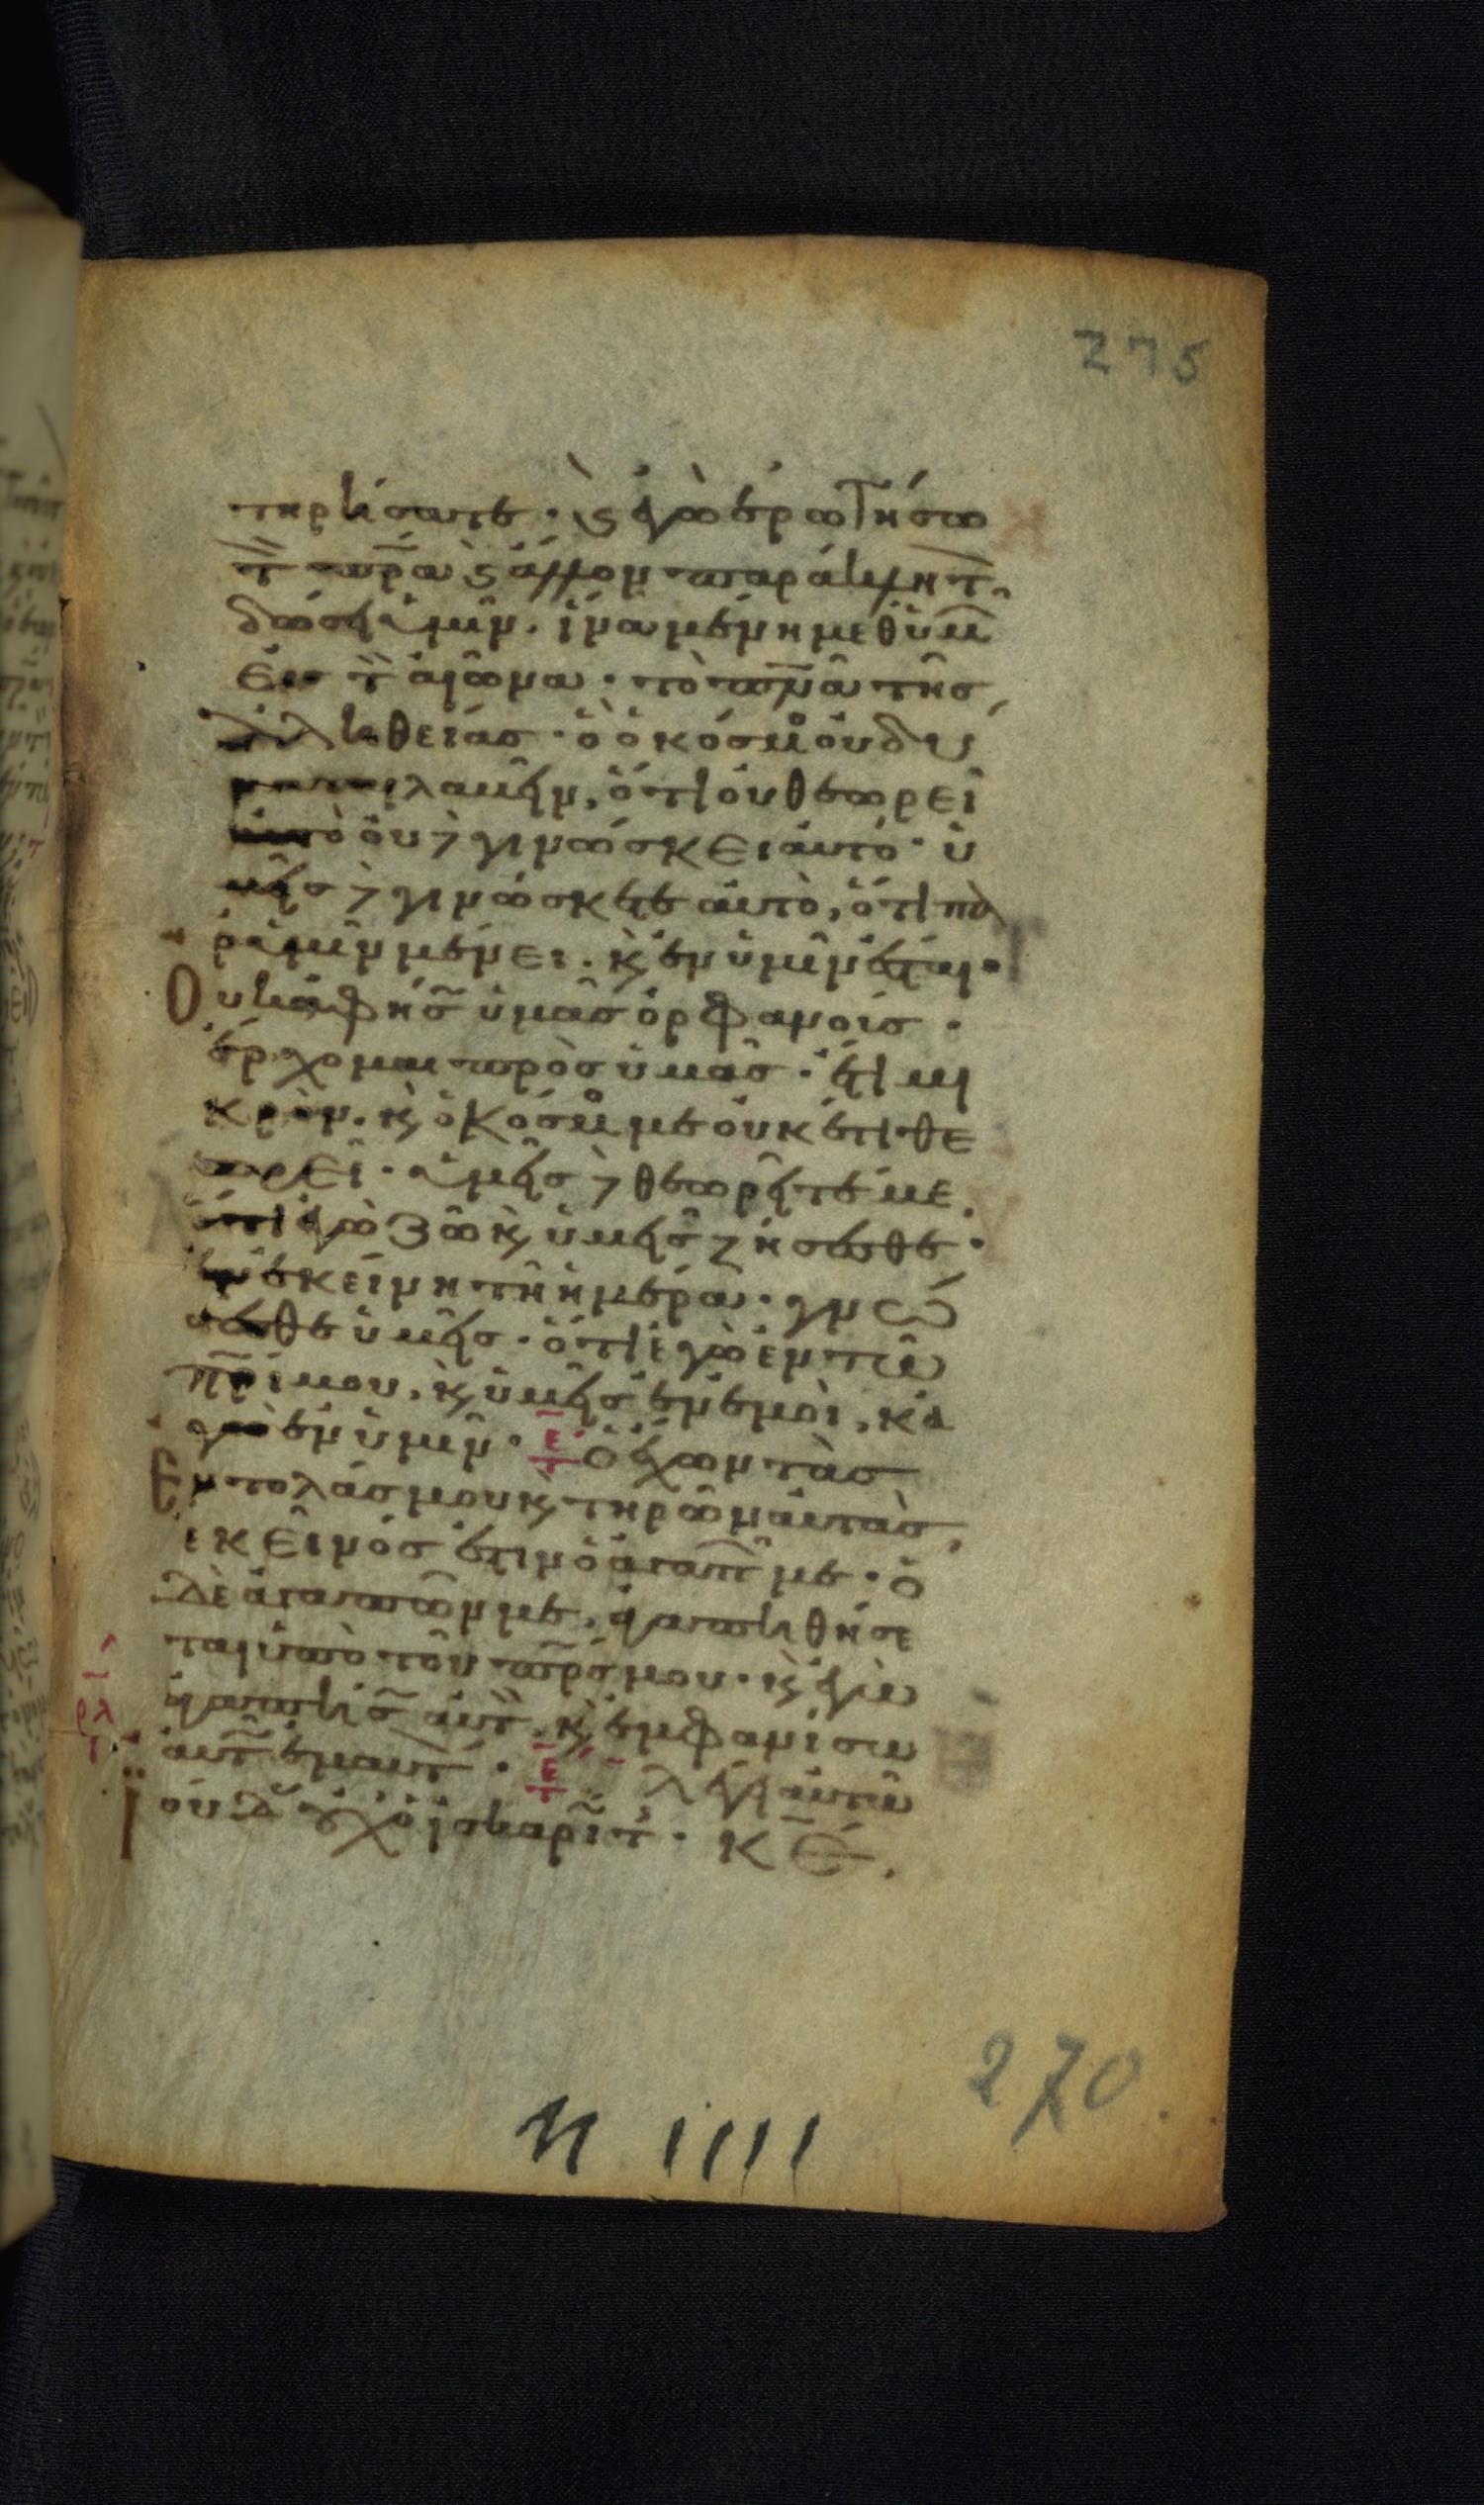 275
τηρήσατε · ϗ ἐγὼ ἐρωτήσω
τ̀ πρ̅α ϗ ἄλλον παράκλητ
δώσει ὑμῖν · ἵνα μένη μεθ ὑμ
εἰς τ̀ αἰῶνα · τὸ πν̅α τῆς
ἀληθείας · ὃ ὁ κόσμο οὐ δύ
ναται λαβεῖν, ὅτι οὐ θεωρεῖ
αὐτὸ οὐδὲ γινώσκει αὐτό · ὑ
μεῖς δὲ γινώσκετε αὐτὸ, ὅτι πα
ρ ὑμῖν μένει · ϗ ἐν ὑμῖν ἔσται ·
Οὐκ ἀφήσ ὑμᾶς ὀρφανούς ·
ἔρχομαι πρὸς ὑμᾶς · ἔτι μι
κρὸν · ϗ ὁ κόσμο με οὐκ ἔτι θε
ωρεῖ · ὑμεῖς δὲ θεωρεῖτέ με ·
ὅτι ἐγὼ ζῶ ϗ ὑμεῖς ζήσεσθε ·
ἐν ἐκείνη τῆ ἡμέρα · γνώ
σεσθε ὑμεῖς · ὅτι ἐγὼ ἐν τῶ
πρ̅ί μου · ϗ ὑμεῖς ἐν ἐμοὶ, κἀ
γὼ ἐν ὑμῖν · ὁ ἔχων τὰς
Ἐντολάς μου ϗ τηρῶν αὐτὰς,
ἐκεῖνός ἐστιν ὁ ἀγαπῶν με · ὁ
δὲ ἀγαπῶν με, ἀγαπηθήσε
ται ὑπὸ τοῦ πρ̅ς μου · ϗ ἐγὼ
ἀγαπήσ αὐτ · ϗ ἐμφανίσω
αὐτ ἐμαυτ · λέγει αὐτῶ
Ἰούδ οὐχ ὁ ἰσκαριώτ · κ̅ε̅,
270